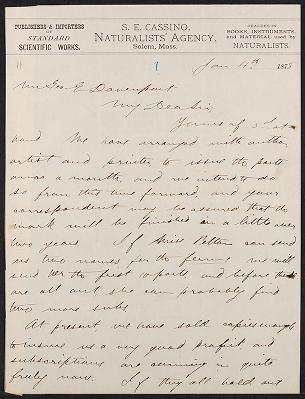 PUBLISHERS & IMPORTERS
OF
STANDARD
SCIENTIFIC WORKS.
S. E. CASSINO,
NATURALISTS' AGENCY,
Salem, Mass.
DEALERS IN
BOOKS, INSTRUMENTS,
and MATERIAL used by
NATURALISTS.
Jan 4th 1878
Mr Geo E Davenport
My Dear Sir
Yours of 3d at
hand We have arranged with author
artist and printer to issue the parts
once a month, and we intend to do
so from this time forward and your
correspondent may be assured that the
work will be finished in a little over
two years If Miss can send
us two names for the ferns we will
send her the first parts and before the
are all out she can probably find
two more subs
At present we have sold copies enough
to insure us a very good profit and
subscriptions are coming in quite
freely now. If they all hold out